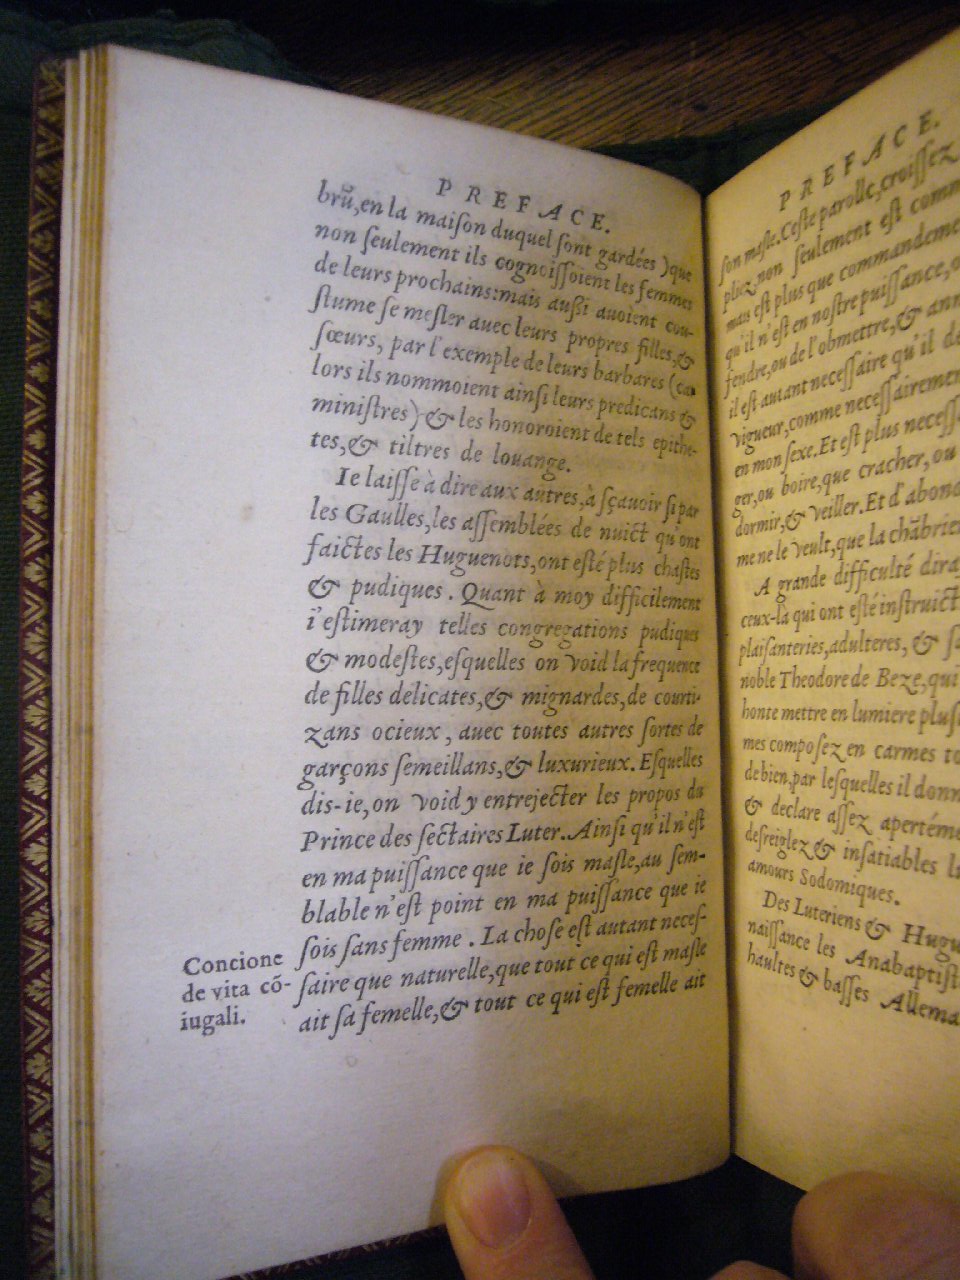 PREFACE.
brũ, en la maiſon duquel ſont gardées) que
non ſeulement ils cognoiſſoient les femmes
de leurs prochains: mais auſsi auoient cou-
ſtume ſe meſler auec leurs propres filles, &
ſœurs, par l'exemple de leurs barbares (ca
lors ils nommoient ainſi leurs predicans &
miniſtres) & les honoroient de tels epithe-
tes, & tiltres de louange.
Ie laiſſe à dire aux autres, à ſçauoir ſi par
les Gaulles, les aſſemblées de nuict qu'ont
faictes les Huguenots, ont eſté plus chaſtes
& pudiques. Quant à moy difficilement
i'eſtimeray telles congregations pudiques
& modeſtes, eſquelles on void la frequence
de filles delicates, & mignardes, de courti-
zans ocieux, auec toutes autres ſortes de
garçons ſemeillans, & luxurieux. Eſquelles
dis-ie, on void y entreiecter les propos du
Prince des ſectaires Luter. Ainſi qu'il n'eſt
en ma puiſſance que ie ſois maſle, au ſem-
blable n'eſt point en ma puiſſance que ie
ſois ſans femme. La choſe eſt autant neceſ-
ſaire que naturelle, que tout ce qui eſt maſle
ait ſa femelle, & tout ce qui eſt femelle ait
Concione
de vita cõ-
iugali.
PREFACE.
ſon maſle. Ceſte parolle, croiſſez
pliez, non ſeulement eſt comm
mais eſt plus que commandeme
qu'il n'eſt en noſtre puiſſance, o
fendre, ou de l'obmettre, & ann
il eſt autant neceſſaire qu'il d
vigueur, comme neceſſairemen
en mon ſexe. Et eſt plus neceſſ
ger, ou boire, que cracher, ou
dormir, & veiller. Et d'abond
me ne le veult, que la chãbrie
A grande difficulté dira
ceux-la qui ont eſté inſtruict
plaiſanteries, adulteres, & ſa
noble Theodore de Beze, qui
honte mettre en lumiere pluſi
mes compoſez en carmes to
de bien, par leſquelles il donn
& declare aſſez apertéme
deſreiglez & inſatiables l
amours Sodomiques.
Des Luteriens & Hugu
naiſſance les Anabaptiſt
haultes & baſſes Allema